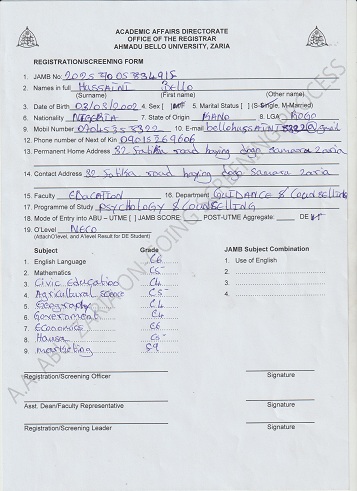 ACADEMIC AFFAIRS DIRECTORATE
OFFICE OF THE REGISTRAR
AHMADU BELLO UNIVERSITY, ZARIA
REGISTRATION/SCREENING FORM
1. JAMB No:
2. Names in full HUSSAINI Bello
(Surname) (First name) (Other name)
3. Date of Birth 03/03/2002 4. Sex [ ] 5. Marital Status [ ] (S-Single, M-Married)
6. Nationality NIGERIA 7. State of Origin KANO 8. LGA ROGO
9. Mobil Number 10. E-mail
12. Phone number of Next of Kin 09015269606
13. Permanent Home Address 82 road dogo Samara Zaria
14. Contact Address 82 road dogo Samara Zaria
15. Faculty EDUCATION 16. Department GUIDANCE & COUNSELLING
17. Programme of Study PSYCHOLOGY & COUNSELLING
18. Mode of Entry into ABU – UTME [ ] JAMB SCORE: POST-UTME Aggregate: DE
19. O'Level NECO
(AttachO'level, and A'level Result for DE Student)
Subject Grade JAMB Subject Combination
1. English Language C6 1. Use of English
2. Mathematics C5 2.
3. Civic Education C4 3.
4. Agricultural Science C5 4.
5. Geography C4
6. Government C4
7. Economics C6
8. Hausa C5
9. marketing
Registration/Screening Officer Signature
Asst. Dean/Faculty Representative Signature
Registration/Screening Leader Signature